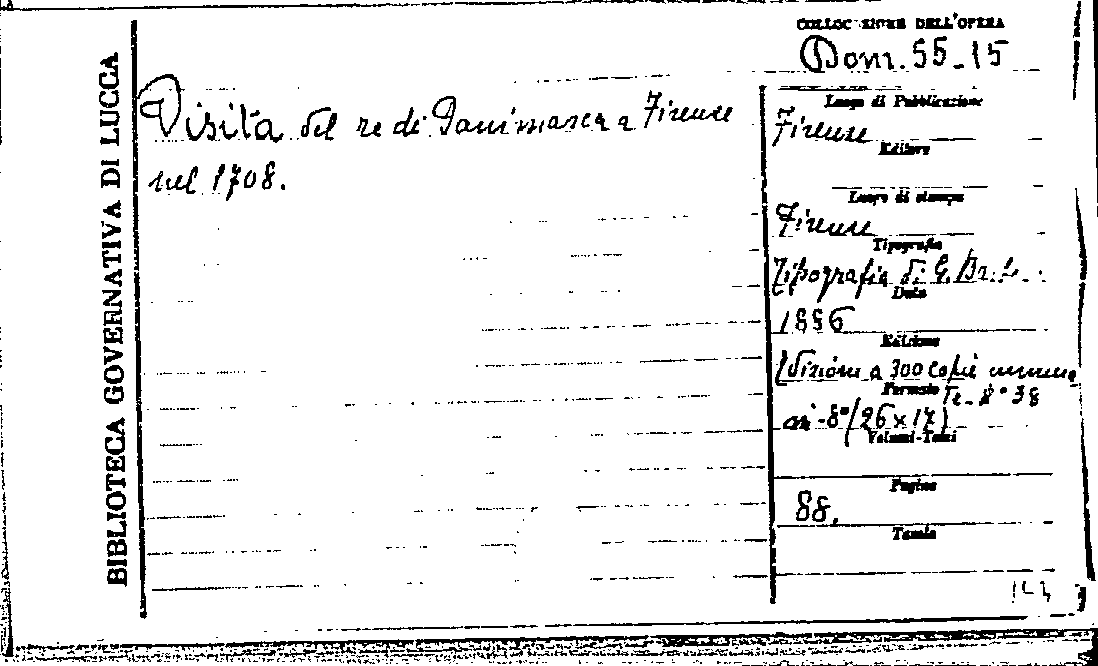 BIBLIOTECA GOVERNATIVA DI LUCCA
COLLOCAZIONE DELL'OPERA
Dom. 55-15
Visita del re di Danimarca a Firenze
nel 1708.
Luogo di Pubblicazione
Firenze
Editore
Luogo di stampa
Firenze
Tipografia
Tipografia di G.
Data
1886
Edizione
Edizione a 300 copie
Formato
in-8° (26x17)
Volumi-Tomi
Pagine
88.
Tavole